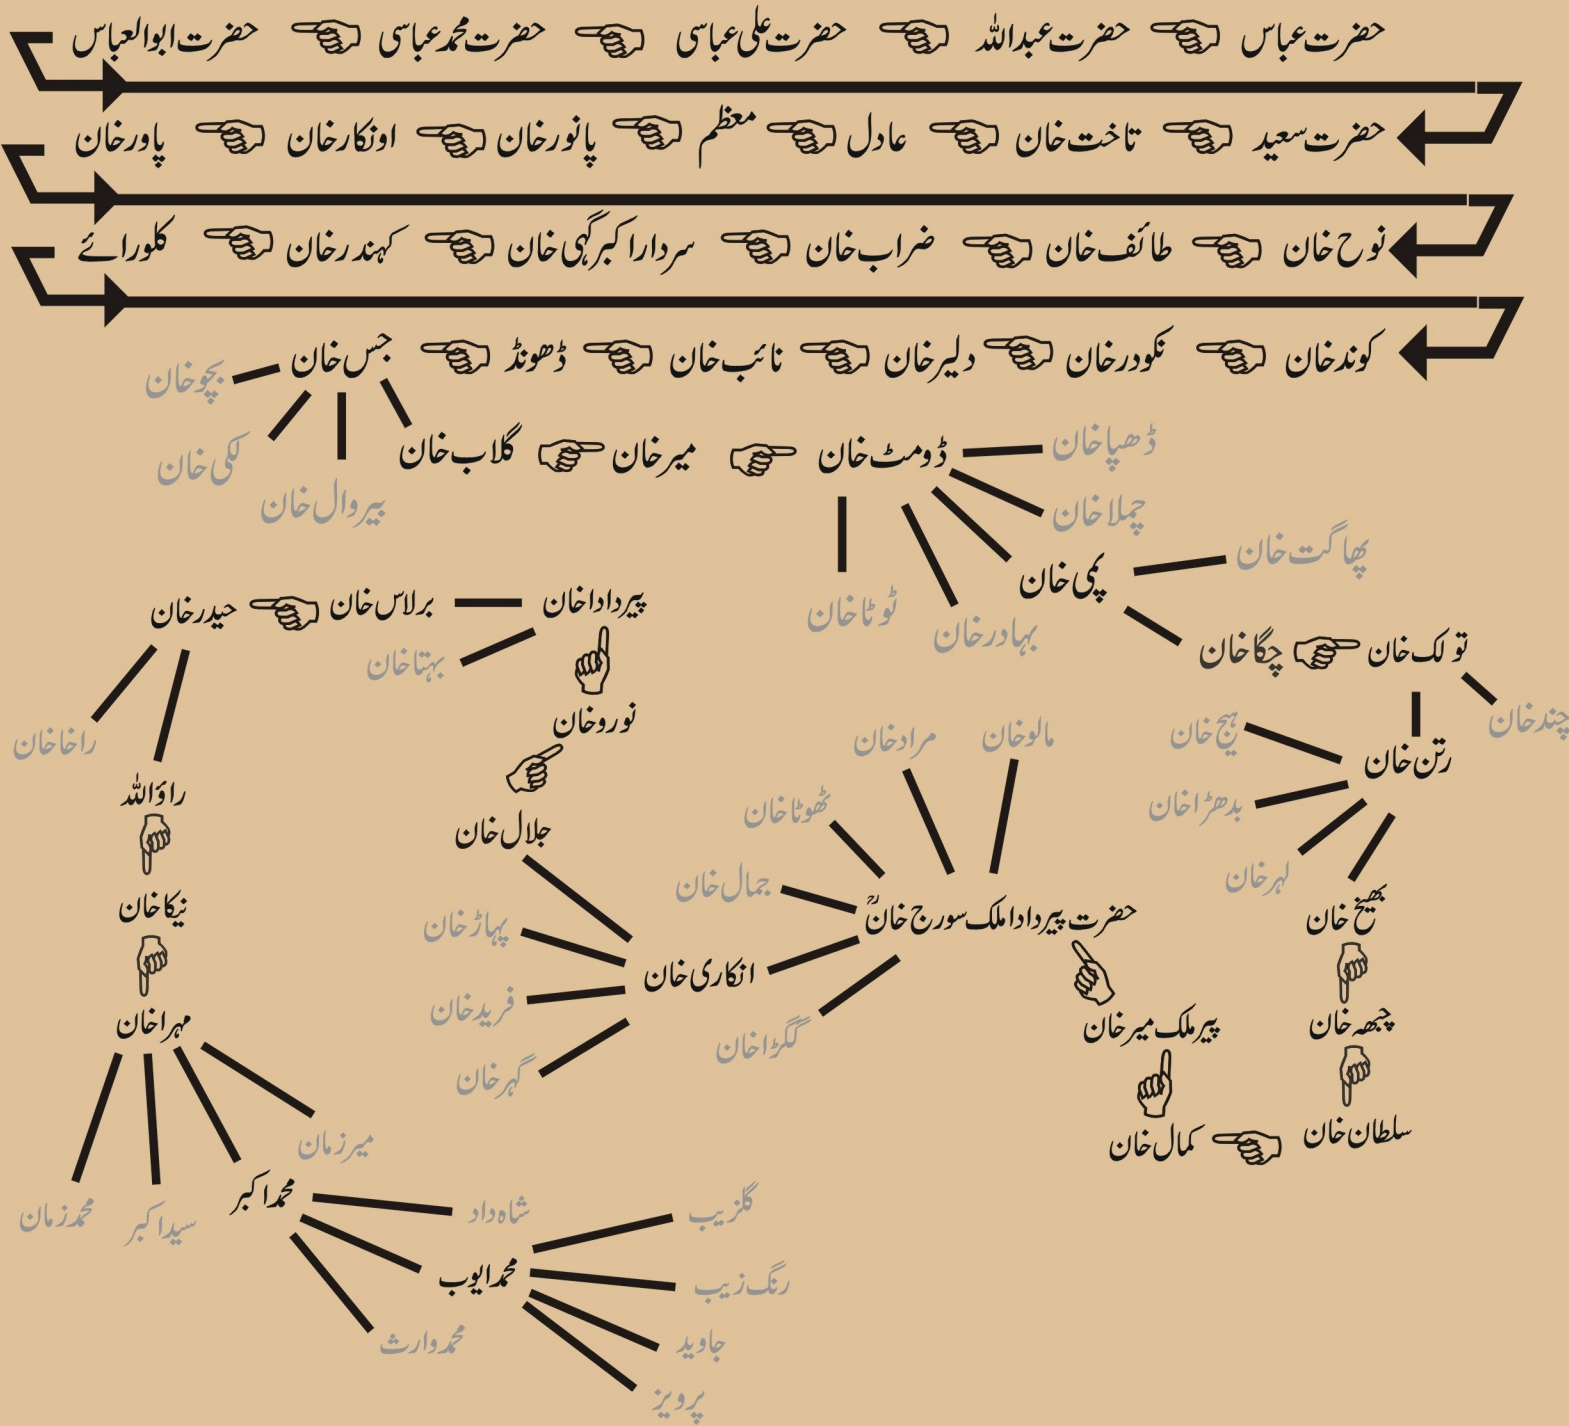 حضرت عباس حضرت عبداللہ حضرت علی عباسی حضرت محمد عباسی حضرت ابوالعباس
حضرت سعید تاخت خان عادل معظم پانور خان اونکار خان پاور خان
نوح خان طائف خان ضراب خان سردار اکبر گہی خان کہندر خان کلورائے
کوند خان نکودر خان دلیر خان نائب خان ڈھونڈ جس خان بجو خان
لکی خان
بیروال خان
گلاب خان میر خان ڈومٹ خان ڈھپا خان
چملا خان
پمی خان پھاگت خان
بہادر خان
ٹوٹا خان
چگا خان تولک خان
چند خان
رتن خان
ہیج خان
بدھڑا خان
لہر خان
بھیخ خان
چبھہ خان
سلطان خان
کمال خان
پیر ملک میر خان
حضرت پیر دادا ملک سورج خانؒ
مالو خان
مراد خان
ٹھوٹا خان
جمال خان
گگڑا خان
انکاری خان
پہاڑ خان
فرید خان
گہر خان
جلال خان
نورو خان
پیر دادا خان
بہتا خان
برلاس خان
حیدر خان
راخا خان
راؤاللہ
نیکا خان
مہرا خان
میر زمان
محمد اکبر
سید اکبر
محمد زمان
شاہ داد
محمد ایوب
محمد وارث
گلزیب
رنگ زیب
جاوید
پرویز